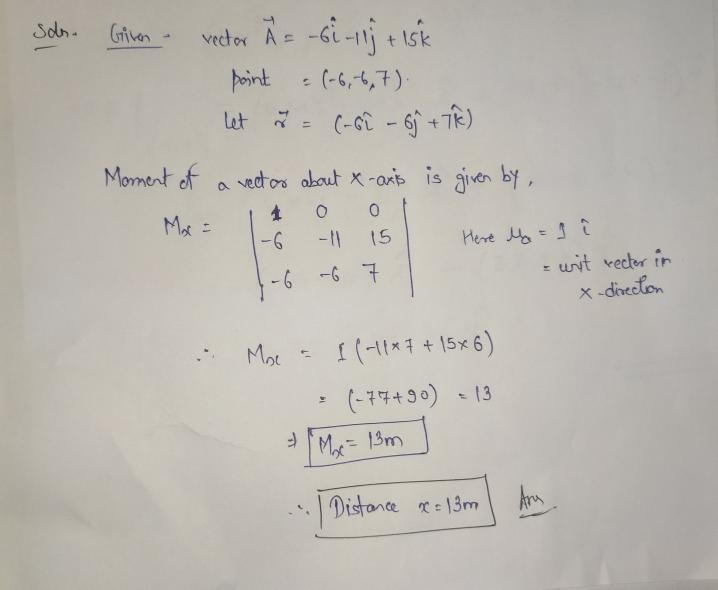 Soln. Given - vector A⃗ = -6î -11ĵ + 15k̂
point = (-6,-6,7).
Let r⃗ = (-6î - 6ĵ + 7k̂)
Moment of a vector about x-axis is given by,
Mx = | 1 0 0 |
| -6 -11 15 |
| -6 -6 7 |
Here = 1 î
= unit vector in
x-direction
∴ Mx = 1 (-11×7 + 15×6)
= (-77+90) = 13
⇒ Mx = 13m
∴ Distance x = 13m Ans.